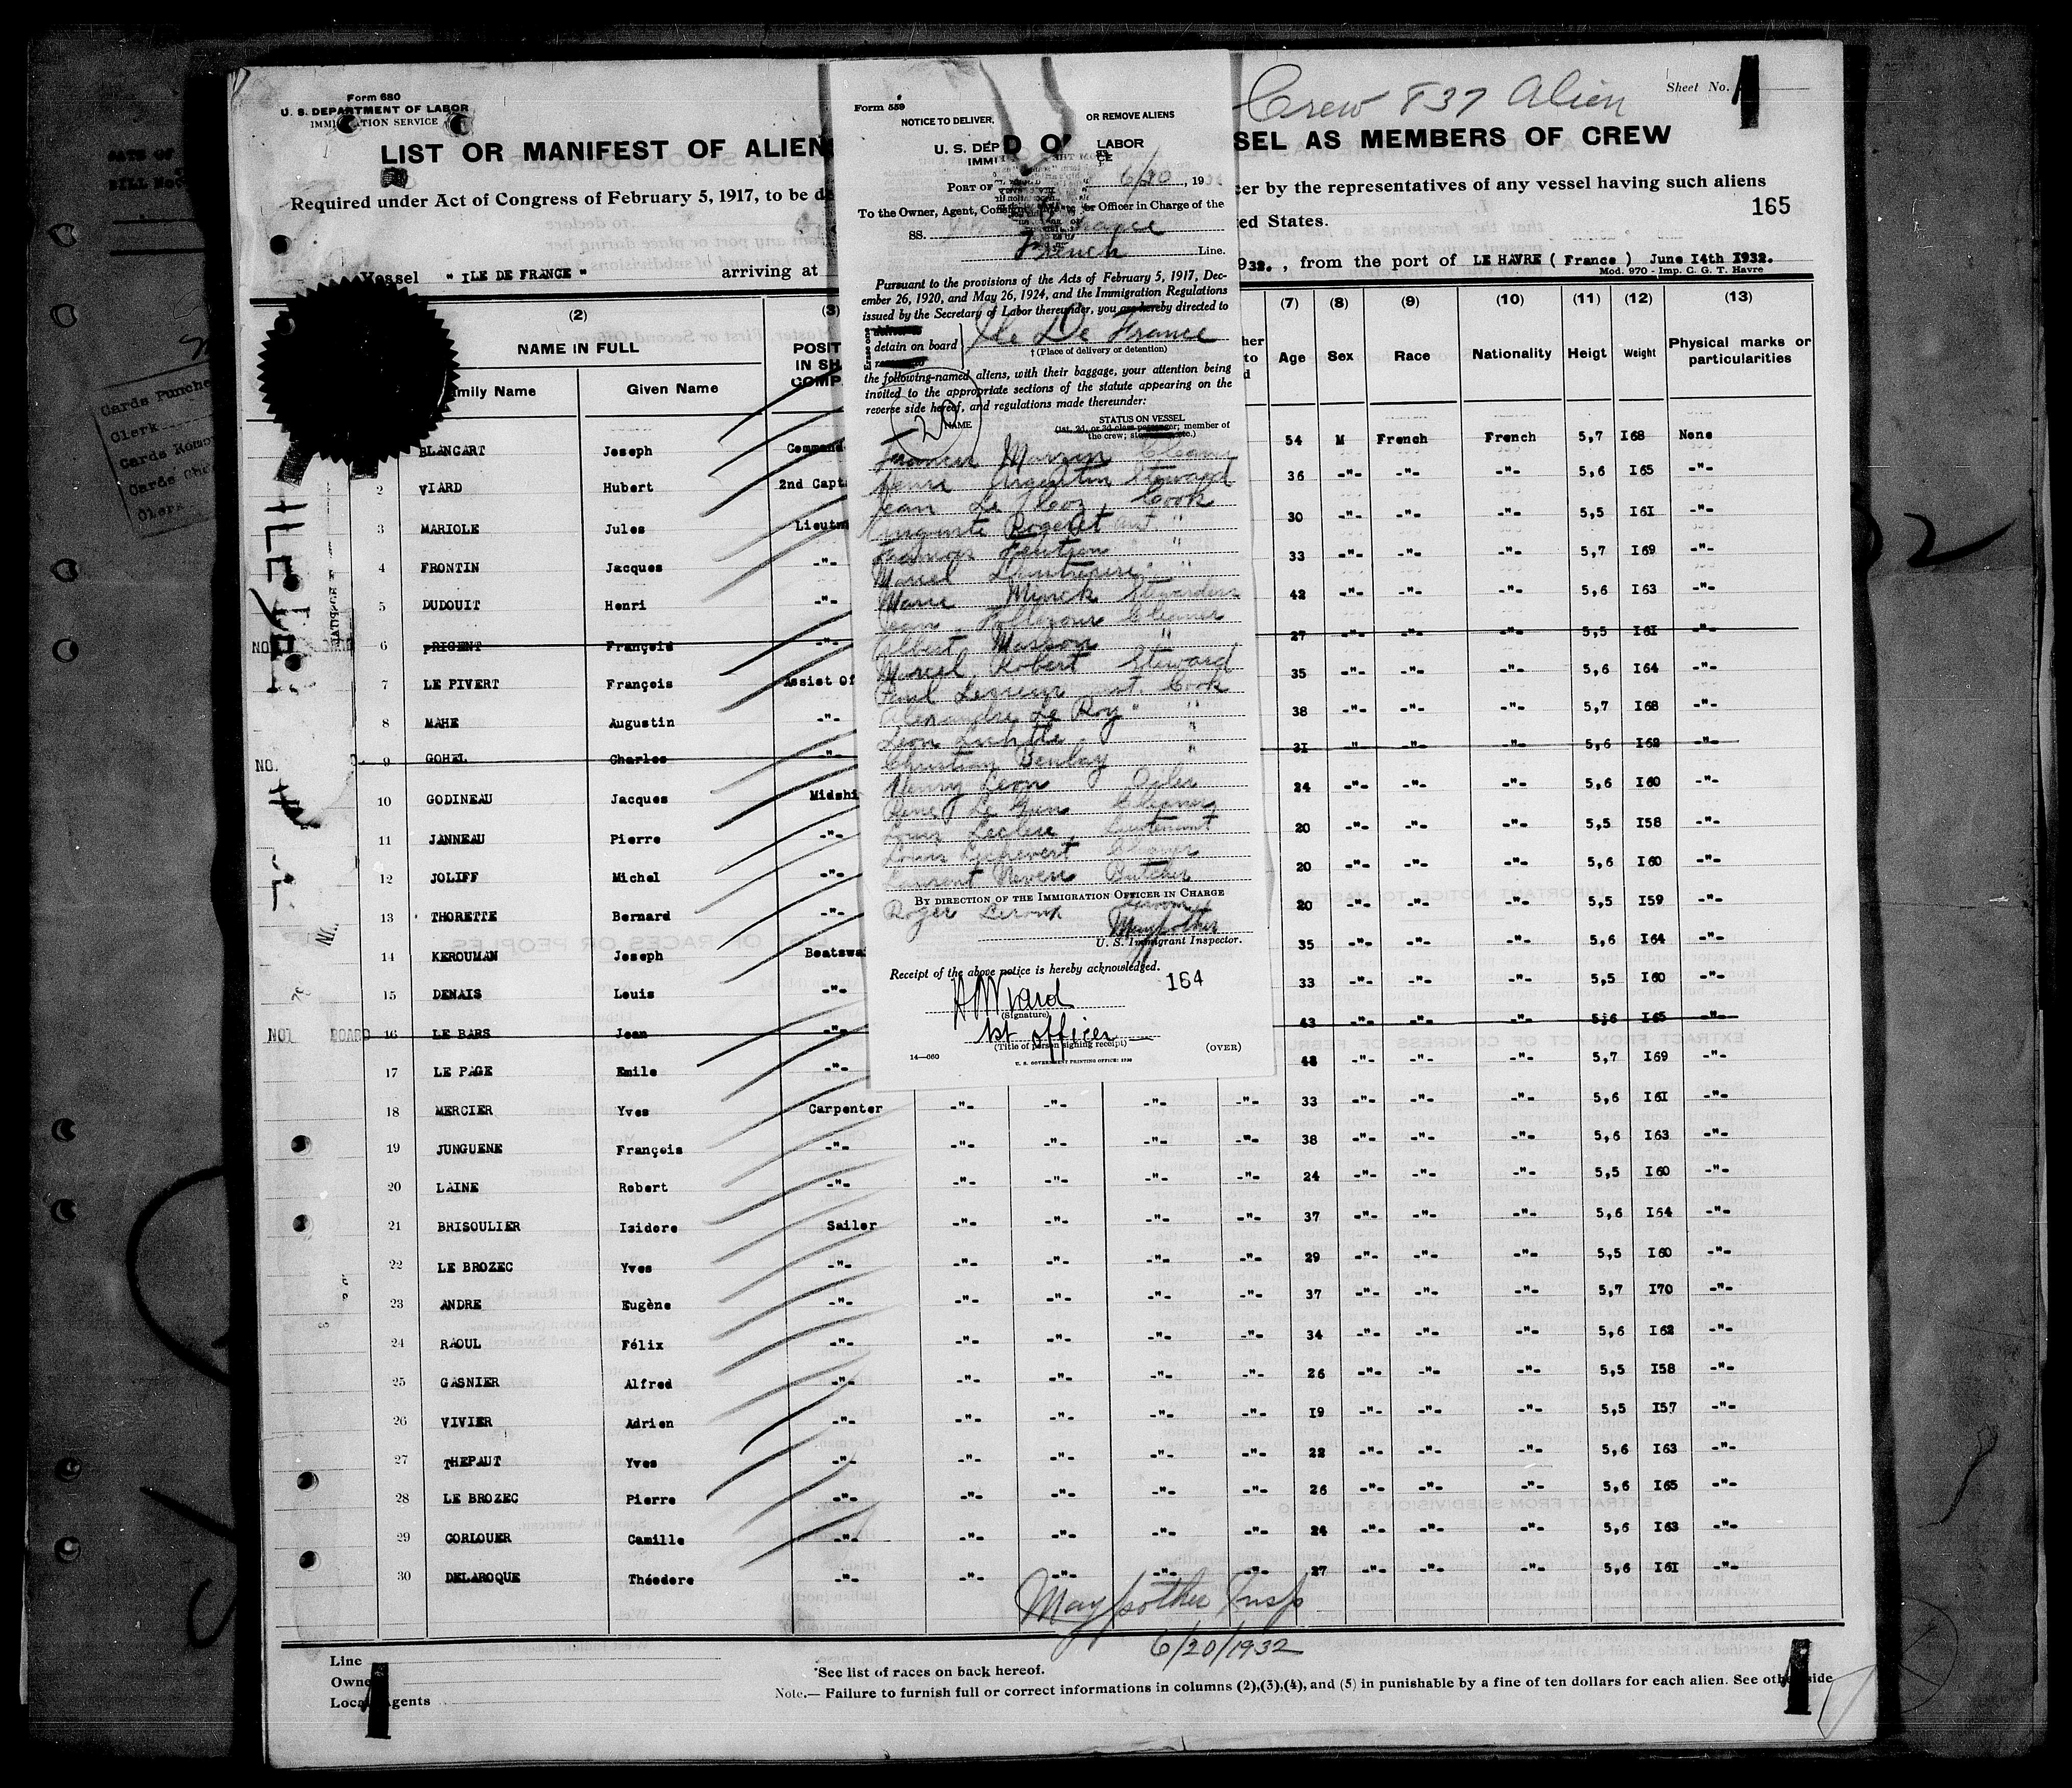 Form 680
U. S. DEPARTMENT OF LABOR
IMMI TION SERVICE
Crew 837 Alien
Sheet No.
LIST OR MANIFEST OF ALIEN
SEL AS MEMBERS OF CREW
Required under Act of Congress of February 5, 1917, to be de
cer by the representatives of any vessel having such aliens
ted States.
165
Vessel " ILE DE FRANCE " arriving at
932. , from the port of LE HAVRE ( France ) June I4th I932.
Mod. 970 - Imp. C. G. T. Havre
Form 559
NOTICE TO DELIVER, OR REMOVE ALIENS
U. S. DEP D O' LABOR
IMMI CE
PORT OF 6/20, 19
To the Owner, Agent, Consignee, Master or Officer in Charge of the
SS. France
French Line.
Pursuant to the provisions of the Acts of February 5, 1917, Dec-
ember 26, 1920, and May 26, 1924, and the Immigration Regulations
issued by the Secretary of Labor thereunder, you are hereby directed to
Erase one
detain on board Ile De France
† (Place of delivery or detention)
the following-named aliens, with their baggage, your attention being
invited to the appropriate sections of the statute appearing on the
reverse side hereof, and regulations made thereunder:
20
NAME STATUS ON VESSEL
(1st, 2d, or 3d class passenger; member of
the crew; stowaway, etc.)
Cleaner
Henri Argentin Steward
Jean Le Coz Cook
Auguste Rogeret ast "
Francois "
Marcel "
Marie Minck Stewardess
Jean Cleaner
Albert Masson "
Marcel Robert Steward
Paul Lesieur ast. Cook
Alexandre Le Roy " "
Leon "
Christian "
Henry Leon Oiler
Rene Le Guen Cleaner
Louis Leclere Lieutenant
Louis Cleaner
Laurent Butcher
BY DIRECTION OF THE IMMIGRATION OFFICER IN CHARGE
Roger Leroux
Maypother
U. S. Immigrant Inspector.
Receipt of the above notice is hereby acknowledged.
164
(Signature)
1st officer
(Title of person signing receipt)
14—660 (OVER)
U. S. GOVERNMENT PRINTING OFFICE: 1930
(2) (3) (7) (8) (9) (10) (11) (12) (13)
NAME IN FULL
Family Name Given Name
POSIT
IN SH
COMP
Age Sex Race Nationality Heigt Weight Physical marks or
particularities
BLANCART Joseph Command 54 M French French 5,7 I68 None
2 VIARD Hubert 2nd Capt 36 -"- -"- -"- 5,6 I65 -"-
3 MARIOLE Jules Lieutn 30 -"- -"- -"- 5,5 I6I -"-
4 FRONTIN Jacques -"- 33 -"- -"- -"- 5,7 I69 -"-
5 DUDOUIT Henri -"- 42 -"- -"- -"- 5,6 I63 -"-
6 PRIGENT François -"- 27 -"- -"- -"- 5,5 I6I -"-
7 LE PIVERT François Assist Of 35 -"- -"- -"- 5,6 I64 -"-
8 MAHE Augustin -"- 38 -"- -"- -"- 5,7 I68 -"-
9 GOHEL Charles -"- 3I " -"- -"- 5,6 I62 -"-
10 GODINEAU Jacques Midshi 24 -"- -"- -"- 5,6 I60 -"-
11 JANNEAU Pierre -"- 20 -"- -"- -"- 5,5 I58 -"-
12 JOLIFF Michel -"- 20 -"- -"- -"- 5,6 I60 -"-
13 THORETTE Bernard -"- 20 -"- -"- -"- 5,5 I59 -"-
14 KEROUMAN Joseph Boatswa 35 -"- -"- -"- 5,6 I64 -"-
15 DENAIS Louis -"- 33 -"- -"- -"- 5,5 I60 -"-
NOT BOARD 16 LE BARS Jean -"- 43 -"- -"- -"- 5,6 I65 -"-
17 LE PAGE Emile -"- 48 -"- -"- -"- 5,7 I69 -"-
18 MERCIER Yves Carpenter -"- -"- -"- -"- 33 -"- -"- -"- 5,6 I6I -"-
19 JUNGUENE François -"- -"- -"- -"- -"- 38 -"- -"- -"- 5,6 I63 -"-
20 LAINE Robert -"- -"- -"- -"- -"- 24 -"- -"- -"- 5,5 I60 -"-
21 BRISOULIER Isidore Sailor -"- -"- -"- -"- 37 -"- -"- -"- 5,6 I64 -"-
22 LE BROZEC Yves -"- -"- -"- -"- -"- 29 -"- -"- -"- 5,5 I60 -"-
23 ANDRE Eugène -"- -"- -"- -"- -"- 37 -"- -"- -"- 5,7 I70 -"-
24 RAOUL Félix -"- -"- -"- -"- -"- 34 -"- -"- -"- 5,6 I62 -"-
25 GASNIER Alfred -"- -"- -"- -"- -"- 26 -"- -"- -"- 5,5 I58 -"-
26 VIVIER Adrien -"- -"- -"- -"- -"- I9 -"- -"- -"- 5,5 I57 -"-
27 THEPAUT Yves -"- -"- -"- -"- -"- 22 -"- -"- -"- 5,6 I63 -"-
28 LE BROZEC Pierre -"- -"- -"- -"- -"- 26 -"- -"- -"- 5,6 I65 -"-
29 CORLOUER Camille -"- -"- -"- -"- -"- 24 -"- -"- -"- 5,6 I63 -"-
30 DELAROQUE Théodore -"- -"- -"- -"- -"- 27 -"- -"- -"- 5,6 I6I -"-
Maypother Insp
6/20/1932
Line
Owne
Local Agents
*See list of races on back hereof.
Note.— Failure to furnish full or correct informations in columns (2),(3),(4), and (5) in punishable by a fine of ten dollars for each alien. See other side